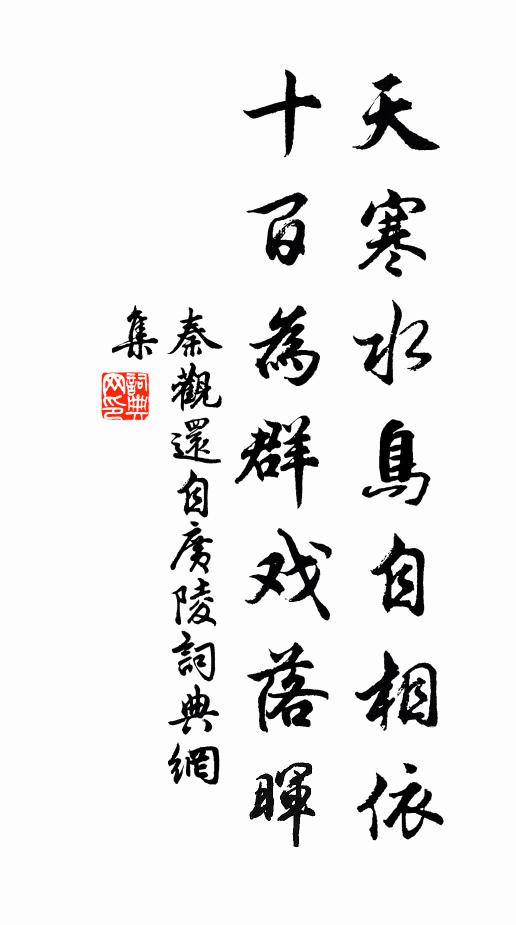 天寒水鳥自相依
十百為群戏落暉
秦觀還自廣陵詞典網
集
詞典
网印